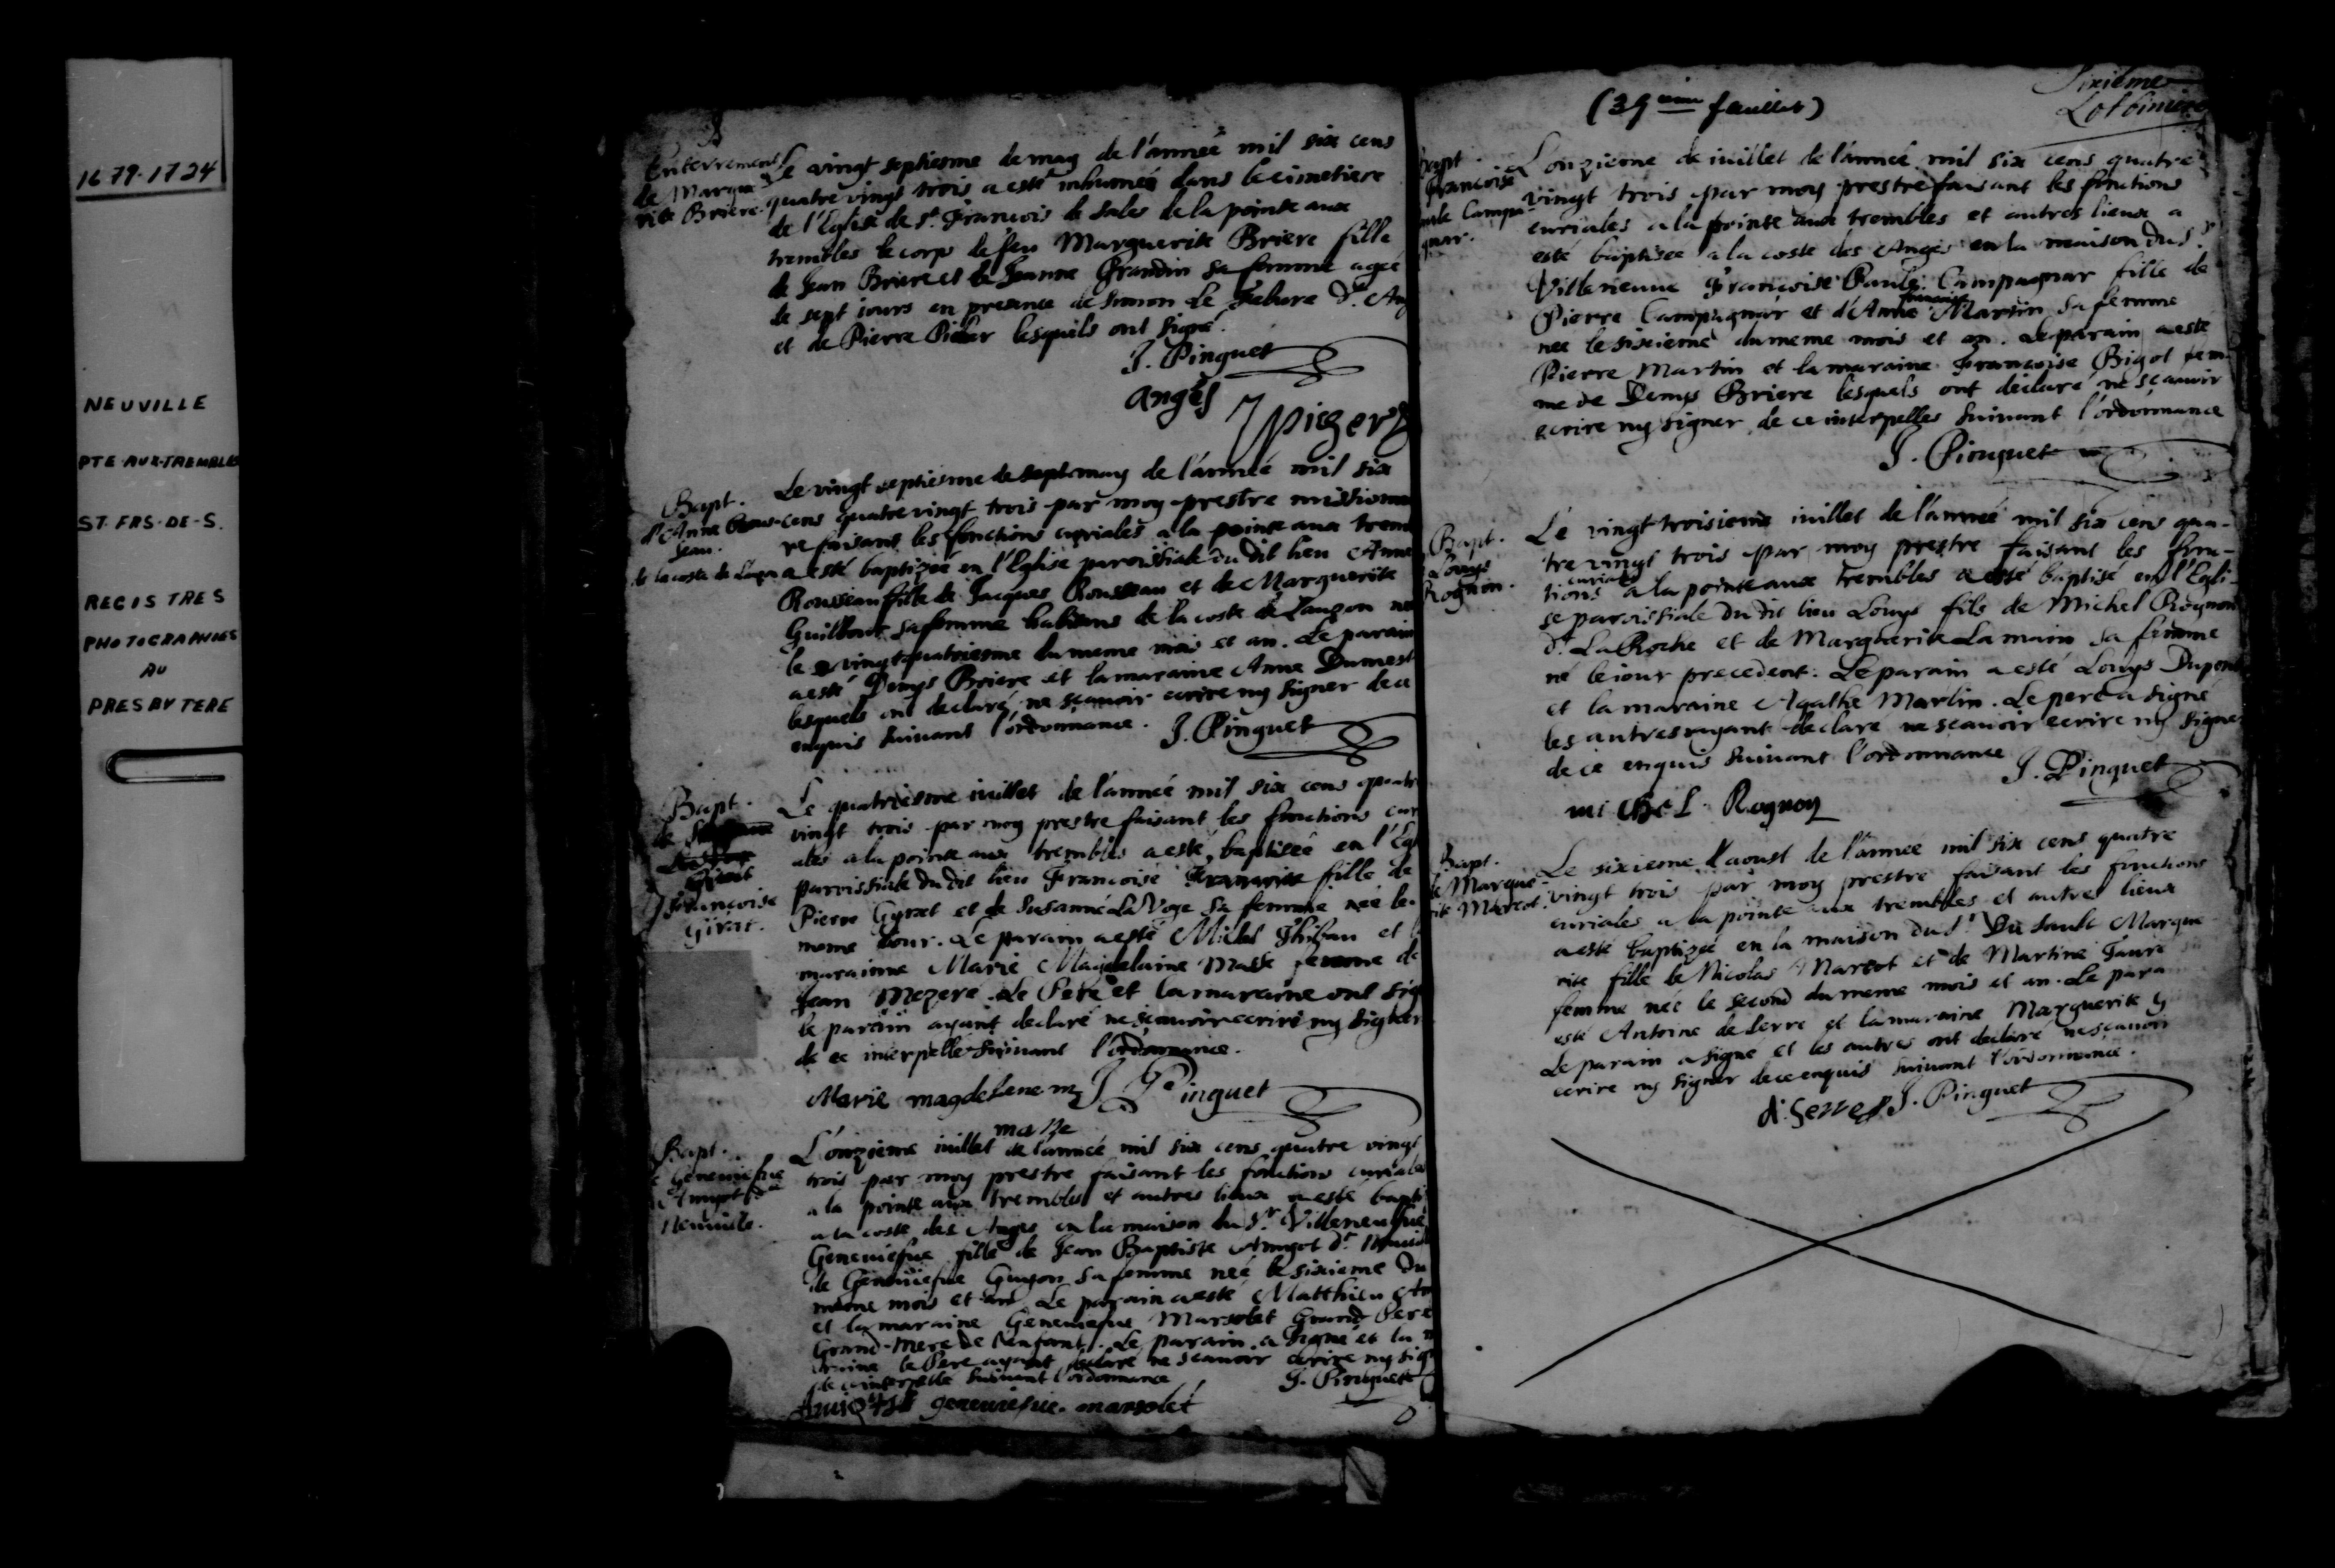 1679-1724
NEUVILLE
PTE-AUX-TREMBLES
ST-FRS-DE-S.
REGISTRES
PHOTOGRAPHIES
AU
PRESBYTERE
Enterrement
de Margue
rite Briere.
Le vingt septiesme de may de l'année mil six cens
quatre vingt trois a esté inhumée dans le cimetiere
de l'Eglise de st. Francois de Sales de la pointe aux
trembles le corp de feu Marguerite Briere fille
de Jean Briere et de Jeanne Grandin sa femme agée
de sept jours en presence de Simon Le Febure dt. Ang
et de Pierre lesquels ont signé.
J. Pinguet
anges
Bapt.
d'Anne Rous-
seau.
de la coste de
Le vingt septiesme de may de l'année mil six
cens quatre vingt trois par moy prestre missionna
re faisant les fonctions curiales a la pointe aux trem
a esté baptizée en l'Eglise paroissiale du dit lieu Anne
Rousseau fille de Jacques Rousseau et de Marguerite
Guillbout sa femme habitans de la coste de Lauzon né
le vingt quatriesme du meme mois et an. Le parain
a esté Denys Briere et la maraine Anne Dumest
lesquels ont declaré ne sçauoir ecrire ny signer de ce
enquis suiuant l'ordonnance. J. Pinguet
Bapt.
de
Françoise
Girat.
Le quatriesme iuillet de l'année mil six cens quatr
vingt trois par moy prestre faisant les fonctions curi
ales a la pointe aux trembles a esté baptisée en l'Egl
paroissiale du dit lieu Francoise fille de
Pierre Gyrat et de Susanne La Voye sa femme née le
meme iour. Le parain a esté Michel et l
maraine Marie Magdelaine Masse femme de
Jean Mezeré. Le Pere et la maraine ont sig
le parain ayant declaré ne sçauoir ecrire ny signer
de ce interpellé suiuant l'ordonnance.
Marie magdelene m J. Pinguet
masse
Bapt.
Geneuiefue
Amyot dt
Neuuille.
L'onzieme iuillet de l'année mil six cens quatre vingt
trois par moy prestre faisant les fonctions curiales
a la pointe aux trembles et autres lieux a esté bapti
a la coste des Anges en la maison du Sr. Villeneufue
Geneuiefue fille de Jean Baptiste Amyot dt.
de Geneuiefue Guyon sa femme née le sixieme du
meme mois et an. Le parain a esté Matthieu Am
et la maraine Geneuiefue Marsolet Grand Pere
Grand-mere de l'enfant. Le parain a signé et la m
raine le Pere ayant declaré ne sçauoir ecrire ny sig
de ce interpellé suiuant l'ordonnance J. Pinguet
geneuiefue marsolet
(39 ieme feuillet)
Sixième
Lotbinière
Bapt.
Francoise
Paule Campa-
gnar.
L'onzieme de iuillet de l'année mil six cens quatre
vingt trois par moy prestre faisant les fonctions
curiales a la pointe aux trembles et autres lieux a
esté baptisée a la coste des Anges en la maison du Sr.
Villeneuue Françoise Paule Campagnar fille de
Pierre Campagnar et d'Anne francoise Martin sa femme
nee le sixieme du meme mois et an. Le parain a esté
Pierre Martin et la maraine Francoise Bigot fem-
me de Denys Briere lesquels ont declaré ne sçauoir
ecrire ny signer de ce interpelles suiuant l'ordonnance
J. Pinguet
Bapt.
Louys
Rognon.
Le vingt troisieme iuillet de l'année mil six cens qua-
tre vingt trois par moy prestre faisant les fonc-
tions curiales a la pointe aux trembles a esté baptisé en l'Egli-
se paroissiale du dit lieu Louys fils de Michel Rognon
dt. La Roche et de Marguerite Lamain sa femme
né le iour precedent. Le parain a esté Louys Dupont
et la maraine Agathe Martin. Le pere a signé
les autres ayant declaré ne sçauoir ecrire ny signer
de ce enquis suiuant l'ordonnance J. Pinguet
michel Rognon
Bapt.
de Margue-
rite Marcot.
Le sixieme d'aoust de l'année mil six cens quatre
vingt trois par moy prestre faisant les fonctions
curiales a la pointe aux trembles et autres lieux
a esté baptizée en la maison du Sr. Du Sault Margue
rite fille de Nicolas Marcot et de Martine Taure
femme née le second du meme mois et an. Le para
esté Antoine de Serre et la maraine Marguerite G
Le parain a signé et les autres ont declaré ne sçauoir
ecrire ny signer de ce enquis suiuant l'ordonnance.
J. Pinguet